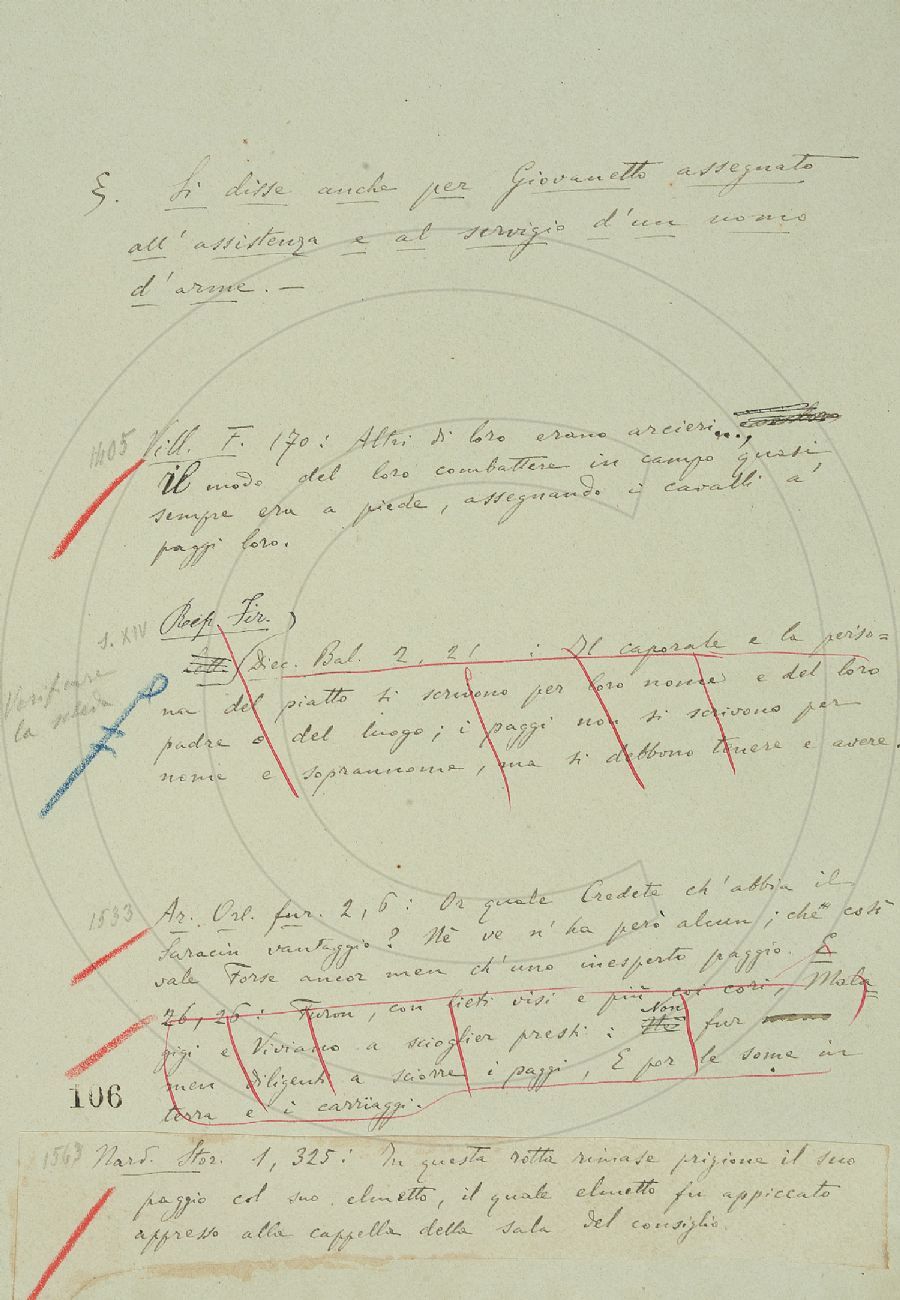 §. Si disse anche per Giovanetto assegnato
all' assistenza e al servigio d' un uomo
d' arme. —
1405 Vill. F. 170: Altri di loro erano arcieri...,
il modo del loro combattere in campo quasi
sempre era a piede, assegnando i cavalli a'
paggi loro.
Rep. Fir.
S. XIV
Lett. (Diec. Bal. 2, 21 : Il caporale e la perso=
Verificare
la scheda
na del piatto si scrivono per loro nome e del loro
padre o del luogo; i paggi non si scrivono per
nome e soprannome, ma si debbono tenere e avere.
1533 Ar. Orl. fur. 2, 6: Or quale Credete ch' abbia il
Saracin vantaggio? Nè ve n' ha però alcun; chè così
vale Forse ancor men ch' uno inesperto paggio. E
26, 26: Furon, con lieti visi e più coi cori, Mala
gigi e Viviano a scioglier presti: Non fur
men diligenti a sciorre i paggi, E por le some in
106
terra e i carriaggi.
1563 Nard. Stor. 1, 325: In questa rotta rimase prigione il suo
paggio col suo elmetto, il quale elmetto fu appiccato
appresso alla cappella della sala del consiglio.